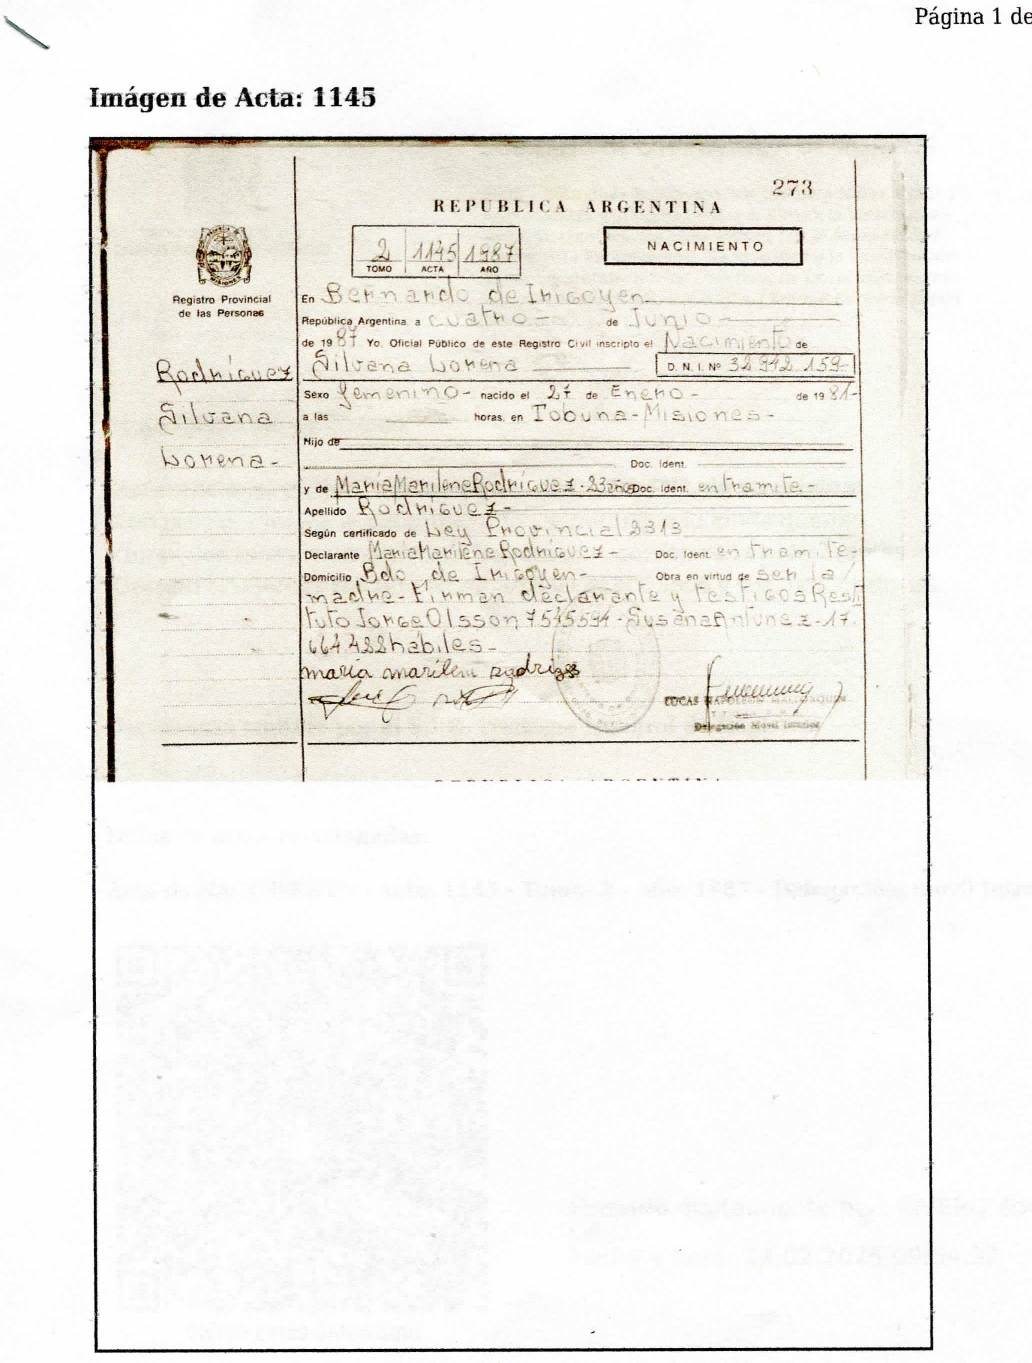 Página 1 de
Imágen de Acta: 1145
273
REPUBLICA ARGENTINA
2 1145 1987
TOMO ACTA AÑO
NACIMIENTO
Registro Provincial
de las Personas
Rodríguez
Silvana
Lorena-
En Bernardo de Irigoyen
República Argentina a cuatro- de Junio
de 1987 Yo, Oficial Público de este Registro Civil inscripto el Nacimiento de
Silvana Lorena D. N. I. Nº 32 942 159-
Sexo femenino- nacido el 27 de Enero- de 1981-
a las horas, en Tobuna-Misiones-
Hijo de
Doc. Ident.
y de María Marilene Rodríguez-23 años Doc. Ident. en tramite-
Apellido Rodríguez-
Según certificado de Ley Provincial 2313
Declarante María Marilene Rodríguez- Doc. Ident. en tramite-
Domicilio Bdo de Irigoyen- Obra en virtud de ser la/
madre-Firman declarante y testigos Resti
tuto Jorge Olsson 7545594-Susana Antunez-17.
664.422 hábiles-
maria marileni
LUCAS NAPOLEON
Delegación Movil
REPUBLICA ARGENTINA